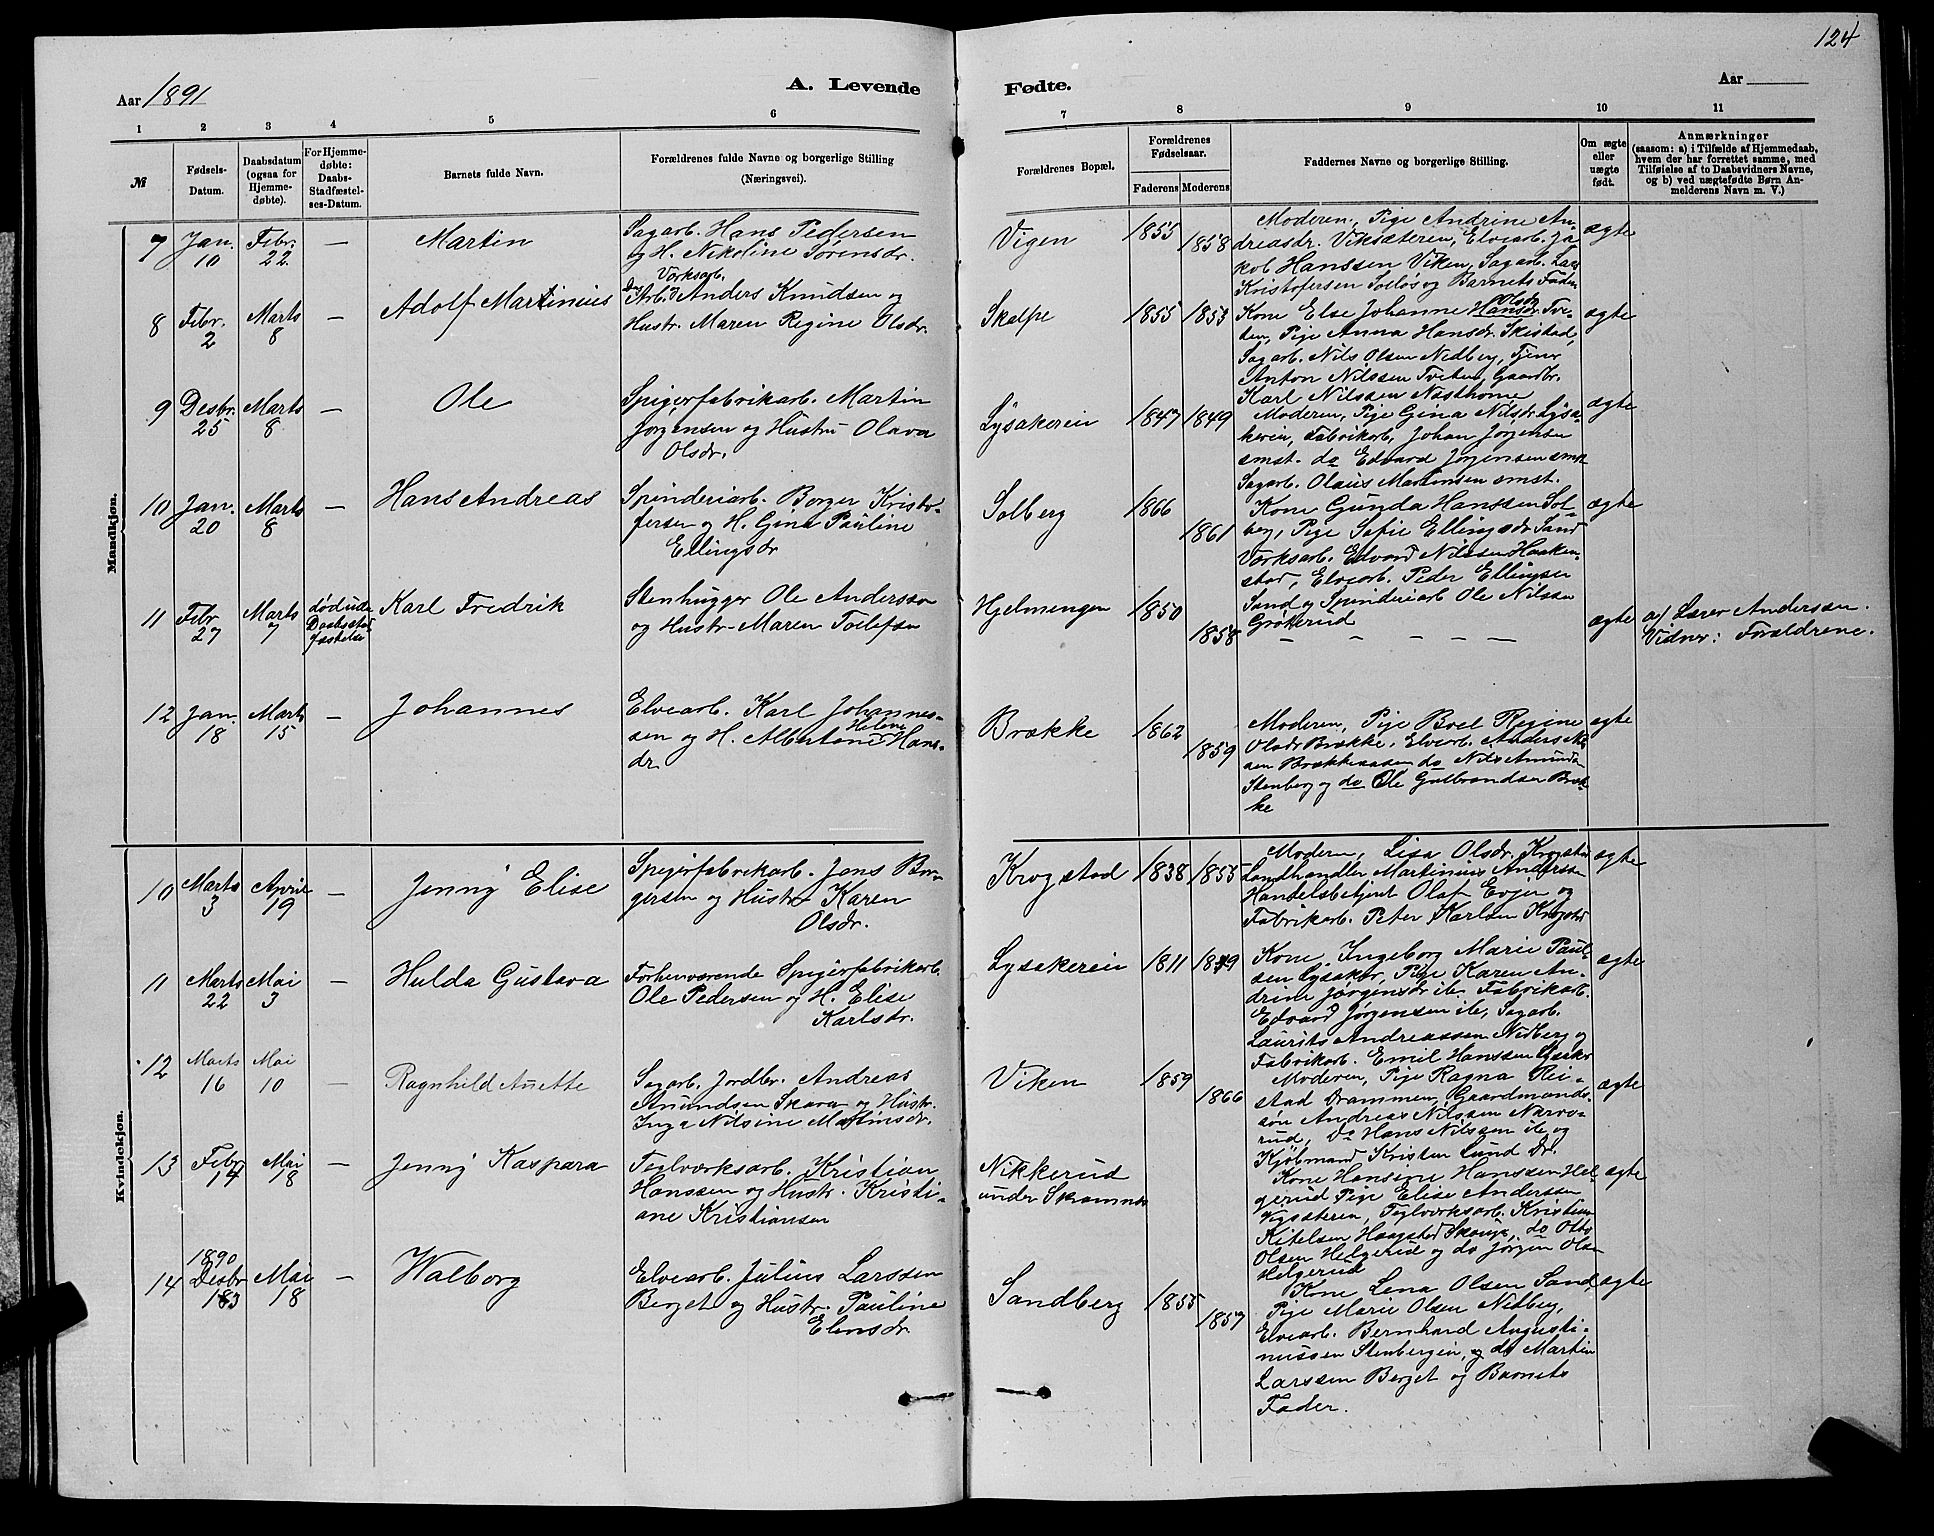 124
Aar 1891
A. Levende
Fødte.
Aar
1 2 3 4 5 6
7 8 9 10 11
№
Fødsels-
Datum.
Daabsdatum
(ogsaa for
Hjemme-
døbte).
For Hjemme-
døbte:
Daabs-
Stadfæstel-
ses-Datum.
Barnets fulde Navn.
Forældrenes fulde Navne og borgerlige Stilling
(Næringsvei).
Forældrenes Bopæl.
Forældrenes
Fødselsaar.
Faderens Moderens
Faddernes Navne og borgerlige Stilling.
Om ægte
eller
uægte
født.
Anmærkninger
(saasom: a) i Tilfælde af Hjemmedaab,
hvem der har forrettet samme, med
Tilføielse af to Daabsvidners Navne,
og b) ved uægtefødte Børn An-
melderens Navn m. V.)
Mandkjøn.
7 Jan. 10
Febr. 22
—
Martin
Sagarb. Hans Pedersen
og H. Nikoline Sørensdr.
Vigen
1855
1858
Moderen, Pige Andrine An-
dreasdr. Viksæteren, Elvearb. Ja-
kob Hanssen Viken, Sagarb. Lars
Kristofersen Solløs og Barnets Fader
ægte
8 Febr. 2
Marts 8
—
Adolf Martinius
Værksarb.
Anders Knudsen og
Hustr. Maren Regine Olsdr.
Skalpe
1855 1853
Olsdr
Kone Else Johanne Hansdr. Tve-
ten, Pige Anna Hansdr. Skistad,
Sagarb. Nils Olsen Nedberg, Tjener
Anton Nilssen Tveten, Gaardbr.
Karl Nilssen Næsthorne
ægte
9 Desbr. 25
Marts 8
—
Ole
Spigerfabrikarb. Martin
Jørgensen og Hustru Olava
Olsdr.
Lysakereie
1847 1849
Moderen, Pige Gina Nilsdr. Lysa-
kereie, Fabrikarb. Johan Jørgensen
smst. do Edvard Jørgensen smst
Sagarb. Olaus Martinsen smst.
ægte
10 Jan. 20
Marts 8
—
Hans Andreas
Spinderiarb. Borger Kristo-
fersen og H. Gina Pauline
Ellingsdr
Solberg
1866
1861
Kone Gunda Hanssen Sol-
berg, Pige Sofie Ellingsdr Sand
Værksarb. Edvard Nilssen Haaken-
stad, Elvearb. Peder Ellingsen
Sand og Spinderiarb Ole Nilssen
Grøterud
ægte
11 Febr 27
Marts 7
død uden
Daabsstad-
fæstelse
Karl Fredrik
Stenhugger Ole Anderssen
og Hustr. Maren Tollefsen
Hjelmengen
1850
1858
— — — — —
ægte
a/ Lærer Andersen.
Vidner: Forældrene.
12 Jan. 18
Marts 15
—
Johannes
Elvearb. Karl Johannes-
sen og H. Albertine Helene Hans-
dr.
Brække
1862
1859
Moderen, Pige Boel Regine
Olsdr Brække, Elvearb. Anders
sen Brækkeaasen do Nils Amunds-
Stenberg og do Ole Gulbrandsen Bræk-
ke
ægte
Kvindekjøn.
10 Marts 3
April 19
—
Jenny Elise
Spigerfabrikarb. Jens Bor-
gersen og Hustr. Karen
Olsdr.
Krogstad
1838 1855
Modern, Lisa Olsdr. Krogstad
Landhandler Martinius Andersen
Handelsbetjent Olaf Evjen og
Fabrikarb. Peter Karlsen Krogstad
ægte
11 Marts 22
Mai 3
—
Hulda Gustava
Forhenværende Spigerfabrikarb.
Ole Pedersen og H. Elise
Karlsdr.
Lysakereie
1811 1849
Kone Ingeborg Marie Paul-
sen Lysaker, Pige Karen An-
drine Jørgensdr ib. Fabrikarb.
Edvard Jørgensen ib, Sagarb.
Laurits Andreassen Nedberg og
Fabrikarb. Emil Hanssen Lysaker
ægte
12 Marts 16
Mai 10
—
Ragnhild Anette
Sagarb. Jordbr. Andreas
Amundsen Skara og Hustr.
Inga Nilsine Martinsdr.
Viken
1859
1866
Moderen, Pige Ragna Rei-
stad Drammen, Gaardmands-
søn Andreas Nilssen Narve-
rud, Do Hans Nilssen ib og
Kjøbmand Kristen Lund Dr.
ægte
13 Febr 14
Mai 18
—
Jenny Kaspara
Teglværksarb. Kristian
Hanssen og Hustr. Kristi-
ane Kristiansen
Nikkerud
under Skramnes
Kone Hansine Hanssen Hel-
gerud Pige Elise Andersen
Vigsæteren, Teglværksarb. Kristian
Kitelsen Haagsted Skouge, do Otto
Olsen Helgerud og do Jørgen Olsen
Helgerud
ægte
14 1890 Desbr 13
Mai 18
—
Walborg
Elvearb. Julius Larssen
Berget og Hustr. Pauline
Eliasdr.
Sandberg
1855
1857
Kone Lena Olsen Sand,
Pige Marie Olsen Nedberg,
Elvearb. Bernhard Augusti-
nussen Stenbergeie, og do Martin
Larssen Berget og Barnets
Fader.
ægte